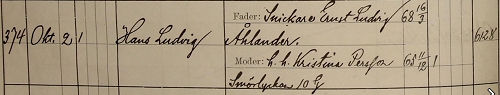 Fader: Snickare Ernst Ludvig 68 16/3
374 Okt. 2 1 Hans Ludvig Åhlander. 6128
Moder: h. h. Kristina Persson 63 11/12 1
Smörlyckan 10 G